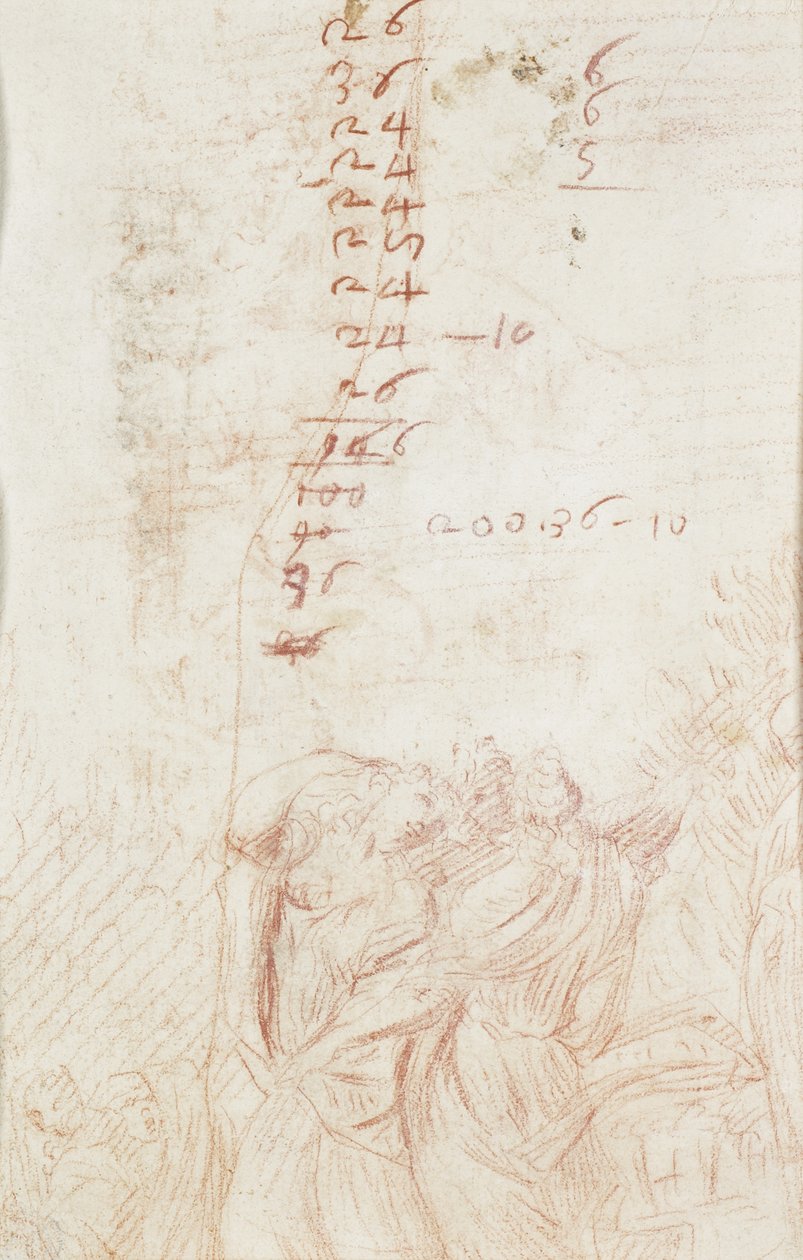 26
36
24
24
24
25
24
24 - 10
26
6
100
40
36
20036 - 10
6
6
5